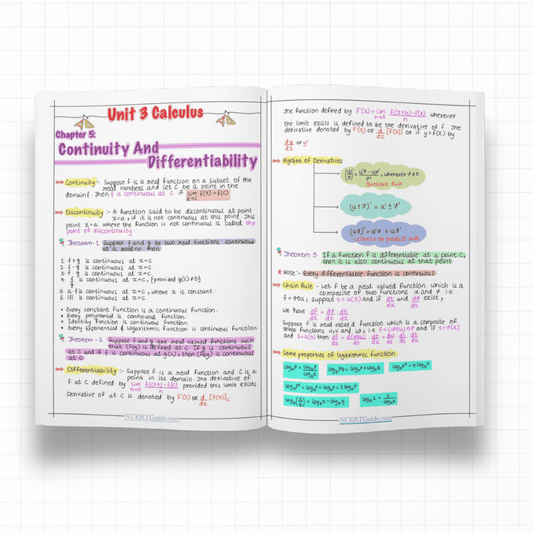 Unit 3 Calculus
Chapter 5:
Continuity And
Differentiability
Continuity:- Suppose f is a real function on a subset of the
real numbers and let c be a point in the
domain f. Then f is continuous at c if lim f(x) = f(c)
x→c
Discontinuity:- A function said to be discontinuous at point
x=a, if it is not continuous at this point. This
point x=a where the function is not continuous is called the
point of discontinuity
Theorem-1 Suppose f and g be two real functions continuous
at a real no. then
1. f+g is continuous at x=c
2. f-g is continuous at x=c
3. f.g is continuous at x=c
4. f/g is continuous at x=c, [provided g(c)≠0]
is continuous at x=c, where a is constant
6. |f| is continuous at x=c
• Every constant function is a continuous function.
• Every polynomial is continuous function.
• Identity function is continuous function
• Every Exponential & Logarithmic function is continuous function
Theorem-2 Suppose f and g are real valued functions such
that (fog) is defined at c. If g is continuous
at c and if f is continuous at g(c), then (fog) is continuous
at c
Differentiability:- Suppose f is a real function and c is a
point in its domain. The derivative of
f at c defined by lim f(c+h)-f(c)/h provided this limit exists
h→0
Derivative of at c is denoted by f'(c) or d/dx [f(x)]c
NCERTGuide.com
The function defined by f'(x) = lim f(x+h)-f(x)/h wherever
h→0
the limit exists is defined to be the derivative of f. The
derivative denoted by f'(x) or d/dx [f(x)] or if y=f(x) by
dy/dx or y'
Algebra of Derivatives
whenever v≠0
Quotient Rule
(u±v)' = u' ± v'
(uv)' = u'v + uv'
product rule
Theorem 3 If a function f is differentiable at a point c,
then it is also continuous at that point
Note:- Every differentiable function is continuous
Chain Rule:- Let f be a real valued function which is a
composite of two functions u and v i.e
f = vou, suppose t = u(x) and if dt/dx and dv/dt exist,
we have df/dx = dv/dt . dt/dx
Suppose f is real valued function which is composite of
three functions u, v and w, i.e
Some properties of logarithmic function
NCERTGuide.com